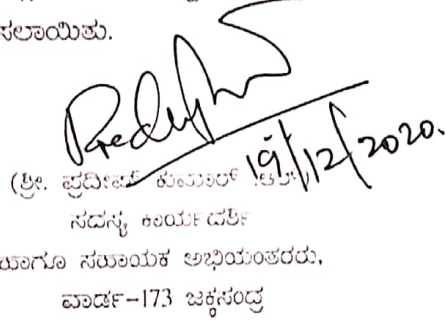 ಸಲಾಯಿತು.
19/12/2020.
(ಶ್ರೀ. ಪ್ರದೀಪ್ ಕುಮಾರ್
ಸದಸ್ಯ ಕಾರ್ಯದರ್ಶಿ
ಹಾಗೂ ಸಹಾಯಕ ಅಭಿಯಂತರರು,
ವಾರ್ಡ್-173 ಜಕ್ಕಸಂದ್ರ